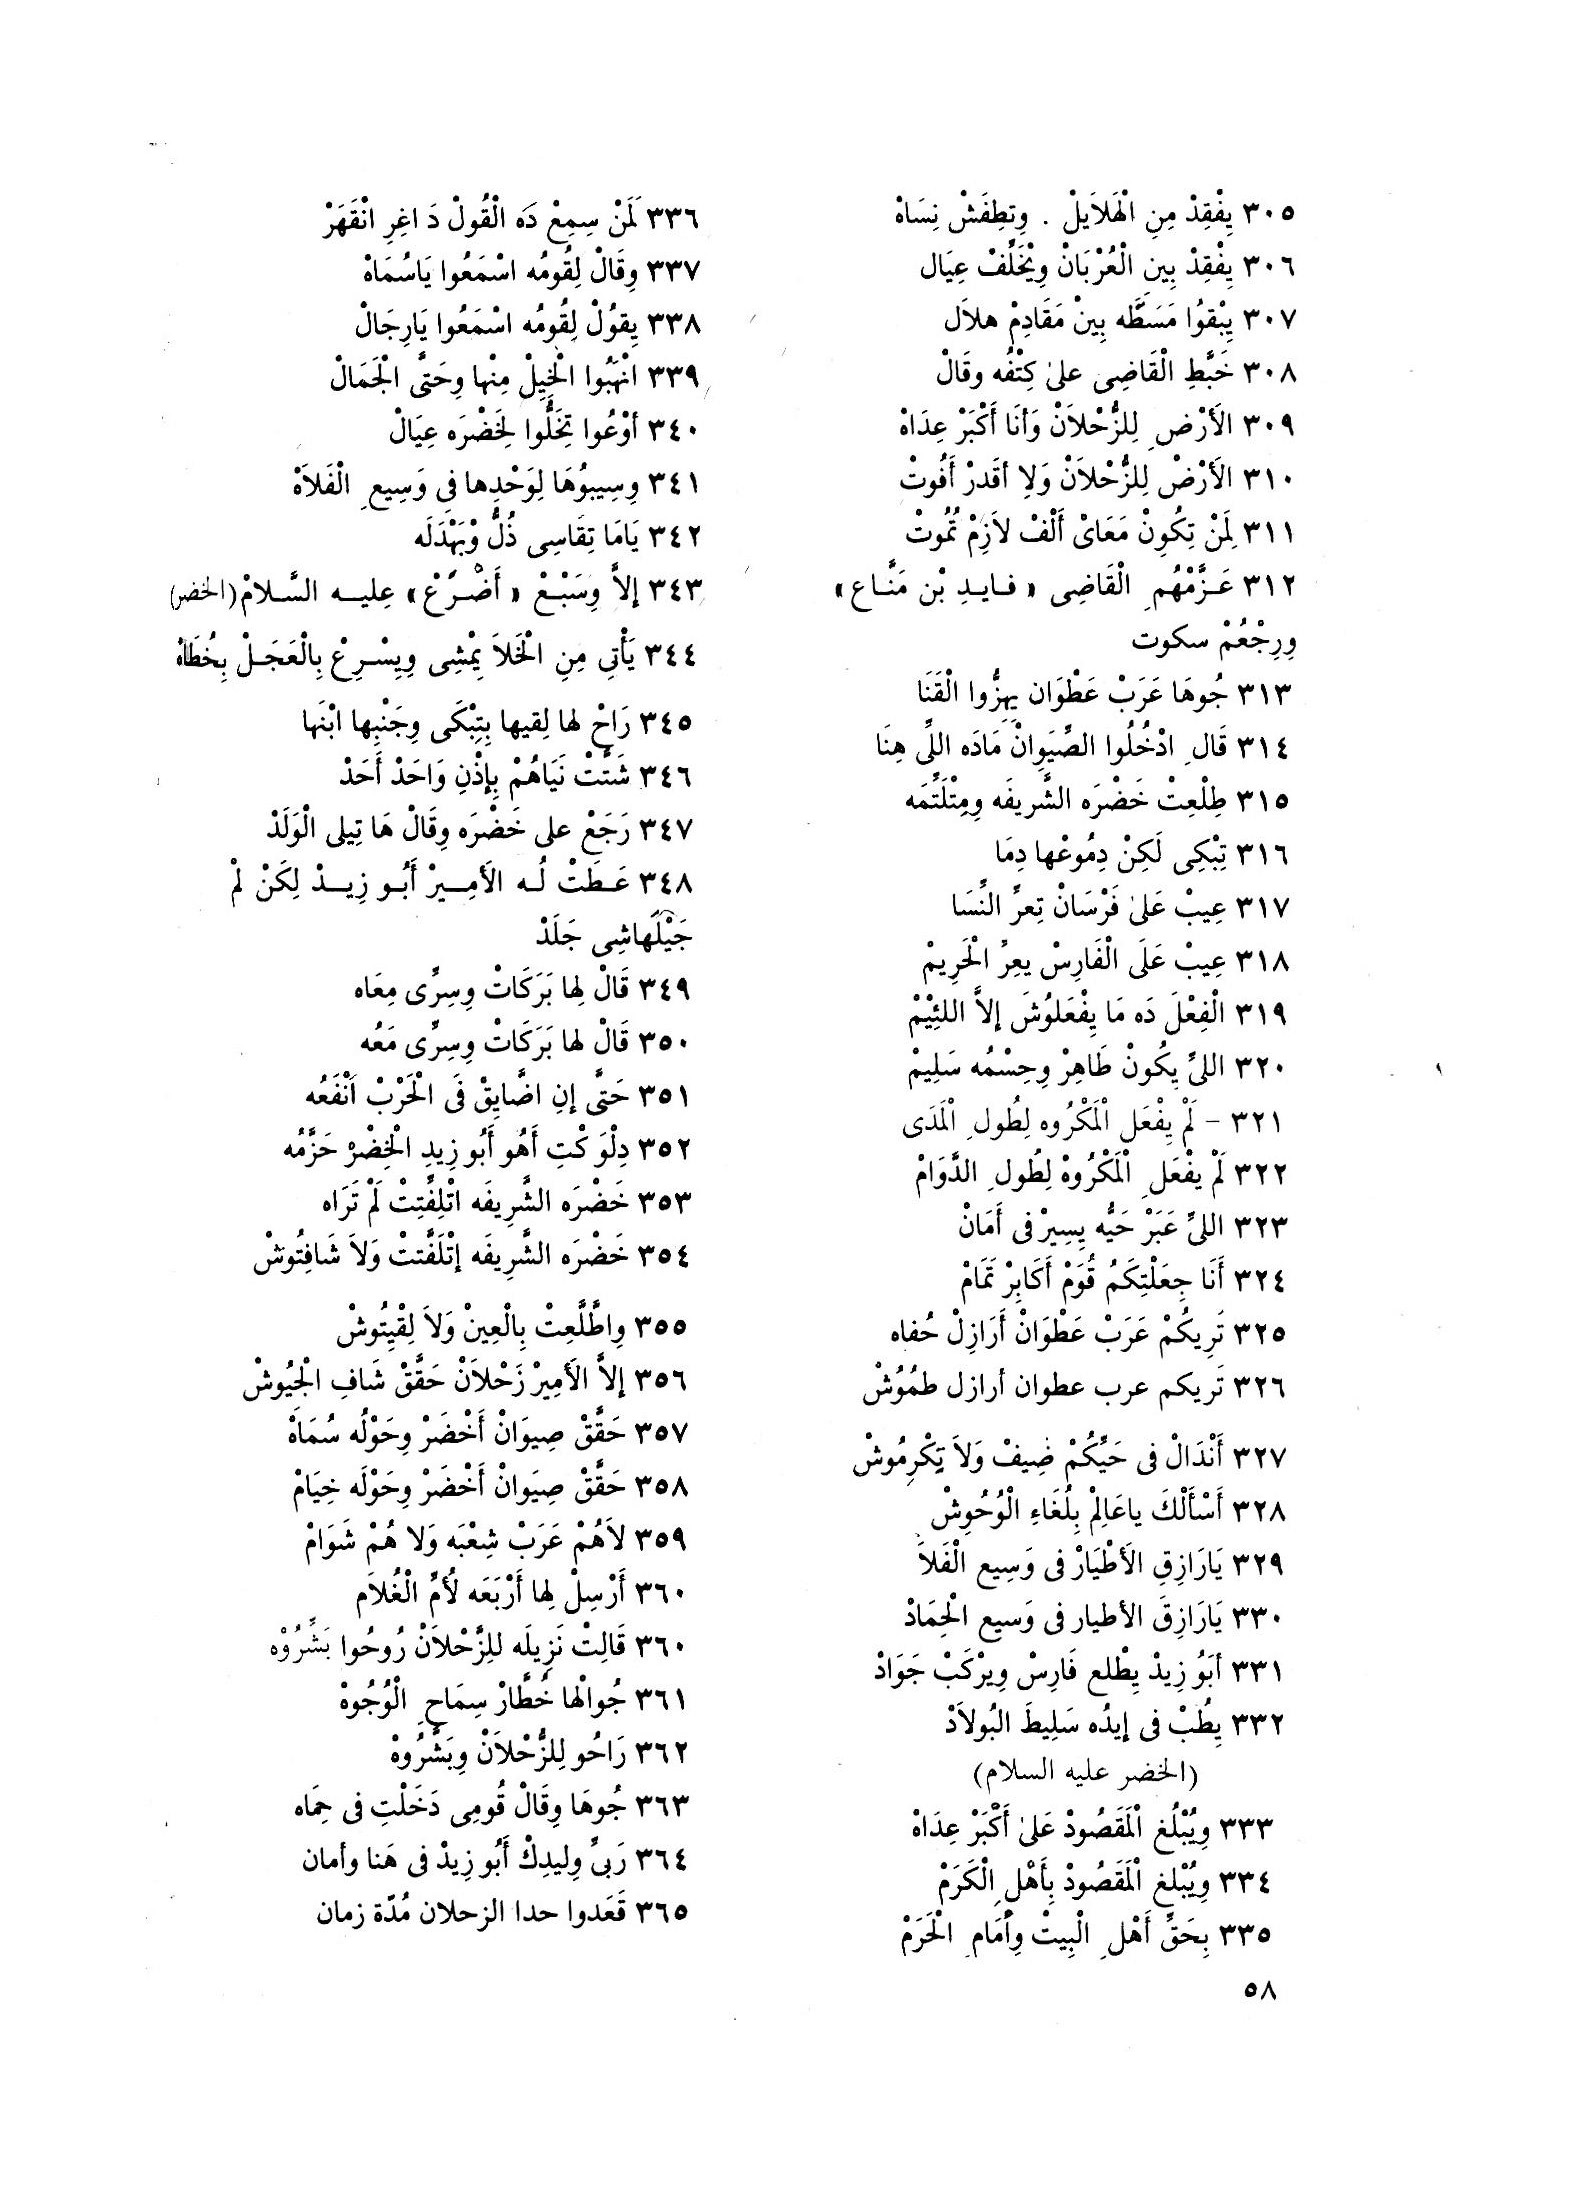 ٣٠٥ يِفْقِدْ مِنِ الْهَلاَيِلْ . وِتِطِفَشْ نِسَاهْ
٣٠٦ يِفْقِدْ بِينِ الْعُرْبَانْ وِيْخَلِّفْ عِيَال
٣٠٧ يِبْقُوا مَسَطَّه بِينْ مَقَادِمْ هلاَل
٣٠٨ خَبَّطِ الْقَاضِى علىٰ كِتْفُه وقَالْ
٣٠٩ الَأرْضِ لِلزُّحْلاَنْ وَأنَا أَكْبَرْ عِدَاهْ
٣١٠ الَأرْضْ لِلزُّحْلاَنْ وَلِا أقَدرْ أَفُوتْ
٣١١ لَمِنْ تِكُونْ مَعَاىْ أَلْفْ لاَزِمْ تُمُوتْ
٣١٢ عَـزَّمْهُمِ الْقَاضِى « فـايـدِ بْن مَنَّـاع »
وِرِجْعُمْ سكوت
٣١٣ جُوهَا عَرَبْ عَطْوَان يِهِزُّوا الْقَنَا
٣١٤ قَالِ ادْخُلُوا الصِّيَوِانْ مَادَه اللِّى هِنَا
٣١٥ طِلْعِتْ خَضْرَه الشَّريفَه وِمِتْلَتِّمَه
٣١٦ تِبْكِى لَكِنْ دِمُوعْها دِمَا
٣١٧ عِيبْ عَلىٰ فَرْسَانْ تِعرِّ النِّسَا
٣١٨ عِيبْ عَلَى الْفَارِسْ يعِرِّ الْحَرِيمْ
٣١٩ الْفِعْلَ دَه مَا يِفْعَلُوشَ إلاَّ اللئِيْمْ
٣٢٠ اللىِّ يِكُونْ طَاهِرْ وِحِسْمُه سَلِيمْ
٣٢١ – لَمْ يِفْعَلِ الْمَكْرُوه لِطُولِ الْمَدَى
٣٢٢ لَمْ يفْعَلِ الْمَكْرُوهْ لِطُولِ الدَّوَامْ
٣٢٣ اللىِّ عَبَرْ حَيُّه يِسِيرْ فى أَمَانْ
٣٢٤ أَنَا جِعَلْتِكَمْ قُوَمْ أَكَابِرْ تَمَامْ
٣٢٥ تَرِيكُمْ عَرَبْ عَطْوَانْ أَرَازِلْ حُفاه
٣٢٦ تَريكم عرب عطوان أرازل طمُوُشْ
٣٢٧ أَنْدَالْ فى حَيِّكُمْ ضِيفْ وَلاَ تِكْرِمُوشْ
٣٢٨ أَسْأَلْكَ ياعَالِمْ بِلُغَاءِ الْوُحُوِشْ
٣٢٩ يَارَازِقِ الَأطْيَارْ فى وَسِيع الْفَلاَ
٣٣٠ يَارَازِقَ الأطيار فى وَسيع الْحِمَادْ
٣٣١ أبَوُ زِيدْ يِطْلع فَارِسْ وِيرْكَبْ جَوَادْ
٣٣٢ يِطُبْ فى إيدُه سَلِيطَ البُولاَدْ
(الخضر عليه السلام)
٣٣٣ وِيُبْلُغ الْمَقَصُودْ عَلىٰ أَكْبَرْ عِدَاهْ
٣٣٤ وِيُبْلغِ الْمَقَصُودْ بِأَهْلِ الْكَرَمْ
٣٣٥ بِحَقِّ أَهْلِ الْبِيتْ وِأَمَامِ الْحَرَمْ
٥٨
٣٣٦ لَمَنْ سِمِعْ دَه الْقُولْ دَ اغِرِ انْقَهَرْ
٣٣٧ وِقَالْ لِقُومُه اسْمَعُوا يَاسُمَاهْ
٣٣٨ يِقوُلْ لِقُومُه اسْمَعُوا يَارِجَالْ
٣٣٩ انْهَبُوا الْخِيِلْ مِنْها وِحَتىَّ الْجَمَالْ
٣٤٠ أوْعُوا تِخَلُّوا لِخَضْرَه عِيَالْ
٣٤١ وِسِيبوُهَا لِوَحْدِها فى وَسِيعِ الْفَلاَهْ
٣٤٢ يَامَا تِقَاسِى ذُلِّ وْبَهْدَلَه
٣٤٣ إلاَّ وِسَبْـعْ « أَضْـرَعْ » عِليـه السَّـلامْ (الخضر)
٣٤٤ يَأْتِى مِنِ الْخَلاَ يِمْشِى وِيِسْـرِعْ بِالْعَجَـلْ بِخُطَاهْ
٣٤٥ رَاحْ لها لِقيها بِتِبْكَى وِجَنْبِها ابْنَها
٣٤٦ شَتَّتْ نَيَاهُمْ بِإِذْنِ وَاحَدْ أَحَدْ
٣٤٧ رَجَعْ على خَضْرَه وِقَالْ هَا تِيلى الْوَلَدْ
٣٤٨ عَـطَتْ لُـه الَأمِـيـرْ أَبُـو زِيـدْ لِكَنْ لَمْ
جَيْلَهاشِى جَلَدْ
٣٤٩ قَالْ لِها بَرَكَاتْ وِسِرِّى مِعَاه
٣٥٠ قَالْ لها بَرَكَاتْ وِسِرِّى مَعُه
٣٥١ حَتىَّ إنِ اضَّايِقْ فَى الْحَرْبْ اَنْفَعُه
٣٥٢ دِلْوَكْتِ أَهُو أَبُو زِيدِ الْخِضْرْ حَزَّمُه
٣٥٣ خَضْرَه الشَّرِيفَه اتْلِفَّتِتْ لَمْ تَرَاه
٣٥٤ خَضْرَه الشَّرِيفَه إتْلَفَّتتْ وَلاَ شَافِتُوشْ
٣٥٥ وِاطَّلَّعِتْ بِالْعِينْ وَلاَ لِقْيِتُوشْ
٣٥٦ إلاَّ الَأمِيرْ زَحْلاَنْ حَقَّقْ شَافِ الْجِيُوشْ
٣٥٧ حَقَّقْ صِيوَانْ أَخْضَرْ وِحَوْلُه سُمَاهْ
٣٥٨ حَقَّقْ صِيَوانْ أَخْضَرْ وِحَوْلَه خِيَامْ
٣٥٩ لاَهُمْ عَرَبْ شِعْبَه وَلا هُمْ شَوَامْ
٣٦٠ أَرْسِلْ لِها أَرْبَعَه لُأمِّ الْغُلاَم
٣٦٠ قَالِتْ نَزِيلَه لِلزَّحْلاَنْ رُوحُوا بَشَّرُوْه
٣٦١ جُوالْها خُطَّارْ سِمَاحِ الْوُجُوهْ
٣٦٢ رَاحُو لِلزُّحْلاَنْ وِبَشَّرُوهْ
٣٦٣ جُوهَا وِقَالْ قُومِى دَخَلْتِ فى حِمَاه
٣٦٤ رَبىِّ وِليدِكْ أَبُو زِيدْ فى هَنا وأمان
٣٦٥ قَعَدوا حدا الزحلان مُدّة زمان